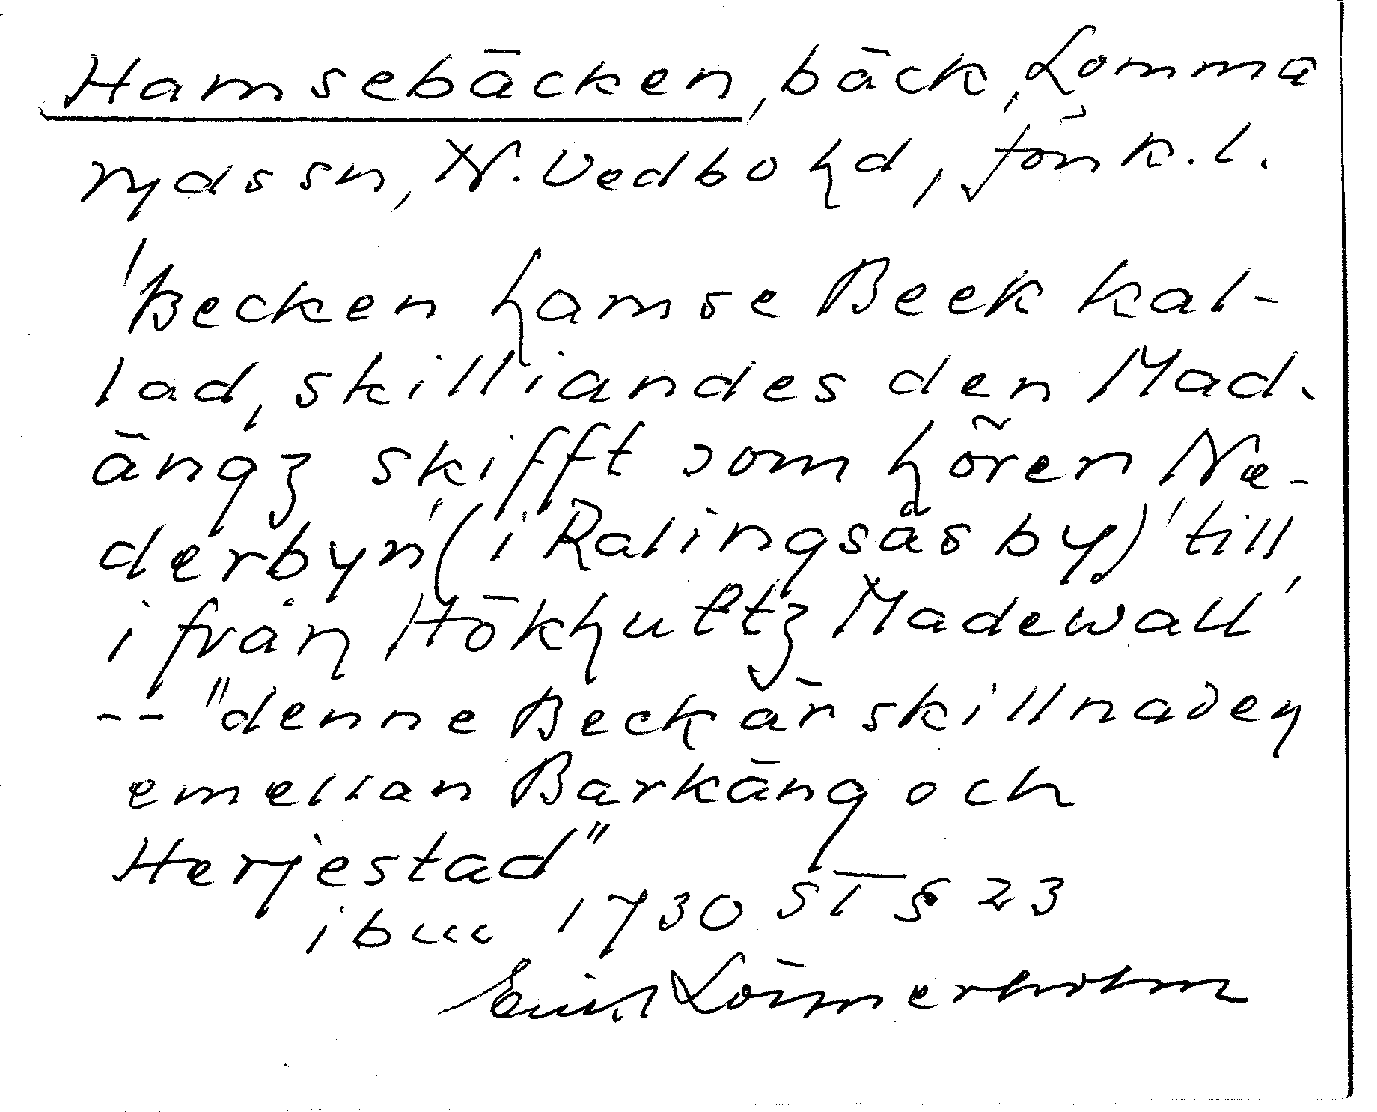 Hamsebäcken, bäck, Lomma
ryds sn, N. Vedbo hd, Jönk. l.
'Becken hamse Beek kal-
lad, skilliandes den Mad-
ängz skifft som hören Ne-
derbyn (i Ralingsås by)' till,
ifrån Hökhultz Madewall
-- "denne Beck är skillnaden
emellan Barkäng och
Herjestad"
1730 ST § 23